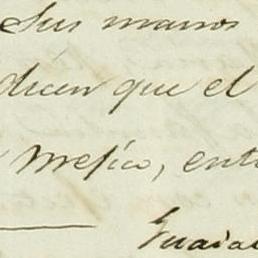 Sus manos
dicen que el
Mejico, ent
Guadal